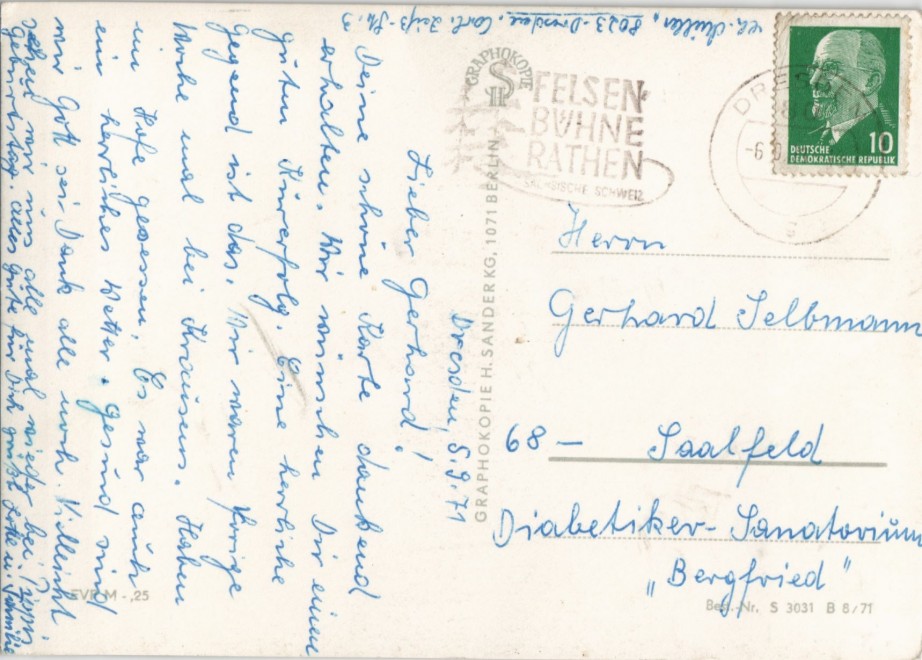 Dresden, 5.9.71
Lieber Gerhard!
Deine schöne Karte dankend
erhalten. Wir wünschen Dir einen
guten Kurerfolg. Eine herrliche
Gegend ist das. Wir waren vorige
Woche mal bei Krausens. Haben
im Hofe gesessen. Es war auch
ein herrliches Wetter. Gesund sind
wir Gott sei Dank alle noch. Villeicht
sehen wir uns alle mal wieder bei
Geburtstag. Alles gute für Dich grüßt Familie
Müller, 8023-Dresden, Carl-Zeiß-Str. 3
GRAPHOKOPIE
H S
FELSEN-
BÜHNE
RATHEN
SÄCHSISCHE SCHWEIZ
DRESDEN
-6
DEUTSCHE
DEMOKRATISCHE REPUBLIK
10
GRAPHOKOPIE H. SANDER KG, 1071 BERLIN
Herrn
Gerhard Selbmann
68- Saalfeld
Diabetiker-Sanatorium
„Bergfried"
EVP M -,25
Best.-Nr. S 3031 B 8/71